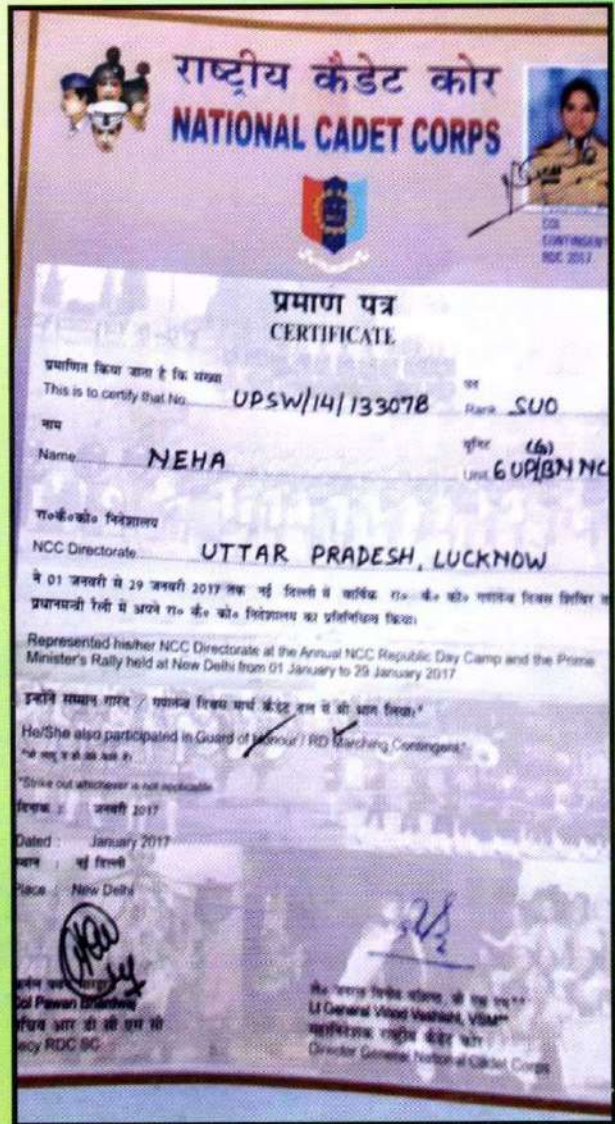 राष्ट्रीय कैडेट कोर
NATIONAL CADET CORPS
COL
CONTINGENT
RDC 2017
प्रमाण पत्र
CERTIFICATE
प्रमाणित किया जाता है कि संख्या
This is to certify that No. UPSW/14/133078 Rank SUO
नाम यूनिट (G)
Name NEHA Unit 6 UP BN NC
रा०कै०को० निदेशालय
NCC Directorate UTTAR PRADESH, LUCKNOW
ने 01 जनवरी से 29 जनवरी 2017 तक नई दिल्ली में वार्षिक रा० कै० को० गणतन्त्र दिवस शिविर
प्रधानमन्त्री रैली में अपने रा० कै० को० निदेशालय का प्रतिनिधित्व किया।
Represented his/her NCC Directorate at the Annual NCC Republic Day Camp and the Prime
Minister's Rally held at New Delhi from 01 January to 29 January 2017
इन्होंने सम्मान गारद / गणतन्त्र दिवस मार्च कैडेट दल में भी भाग लिया।*
He/She also participated in Guard of Honour / RD Marching Contingent*
*Strike out whichever is not applicable
दिनांक : जनवरी 2017
Dated : January 2017
स्थान : नई दिल्ली
Place : New Delhi
Col Pawan Bhardwaj
सचिव आर डी सी एम सी
RDC SC
Lt General Vinod Vashisht, VSM**
महानिदेशक राष्ट्रीय कैडेट कोर
Director General National Cadet Corps